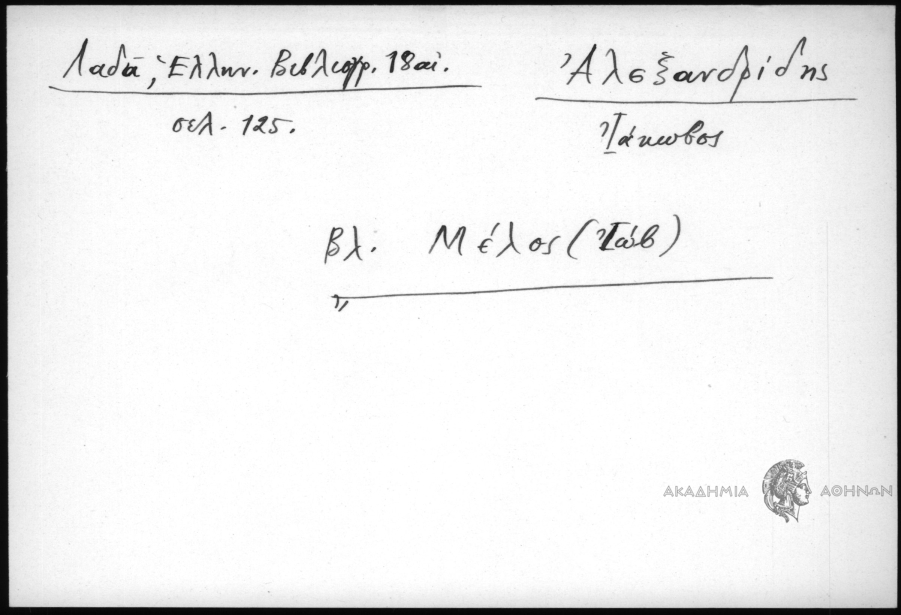 Λαδᾶ, Ἑλλην. Βιβλιογρ. 18 αἰ.
σελ. 125.
Ἀλεξανδρίδης
Ἰάκωβος
βλ. Μέλος (Ἰώβ)
"
ΑΚΑΔΗΜΙΑ ΑΘΗΝΩΝ